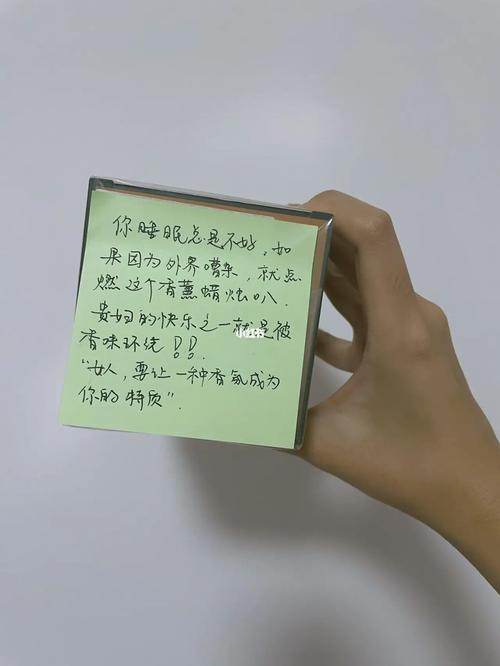 你睡眠总是不好，如
果因为外界嘈杂，就点
燃这个香薰蜡烛叭．
贵妇的快乐之一就是被
香味环绕！！．
“女人，要让一种香氛成为
你的特质”．
小红书